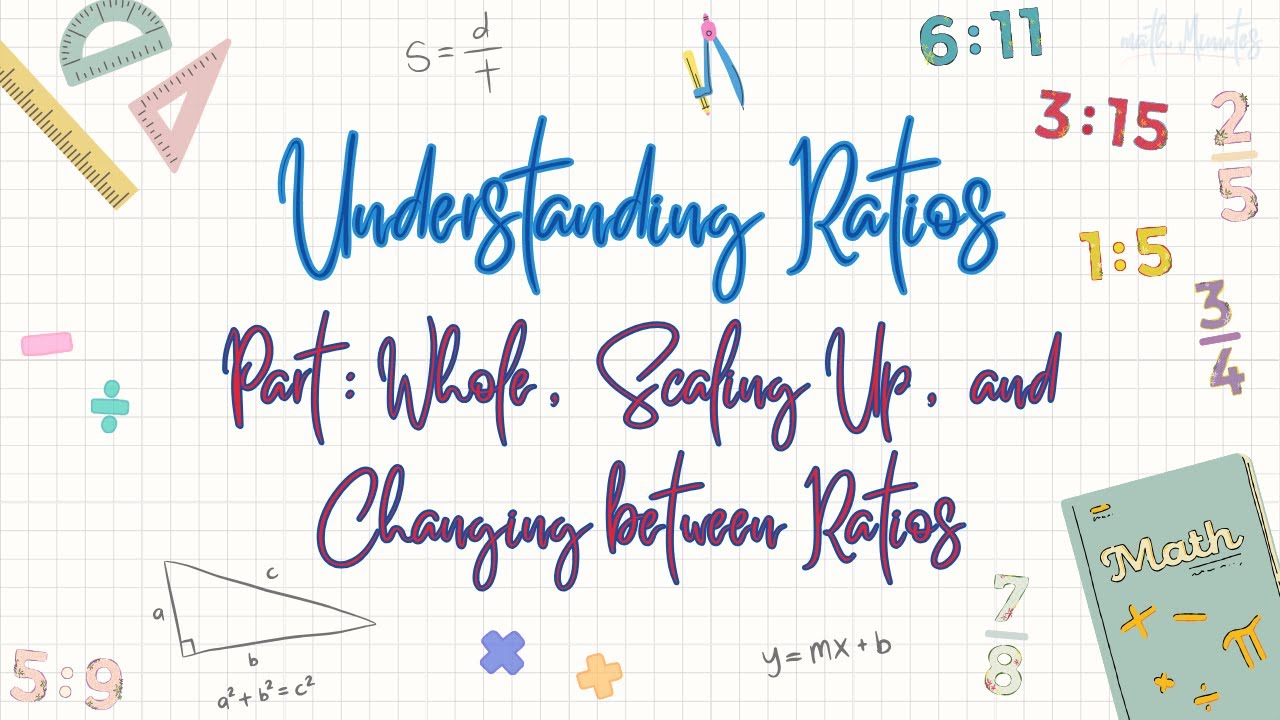 S = d/t
6:11
math Minutes
3:15
2/5
Understanding Ratios
1:5
3/4
Part: Whole, Scaling Up, and
Changing between Ratios
Math
+ − π + ÷
a
c
b
a² + b² = c²
y = mx + b
7/8
5:9